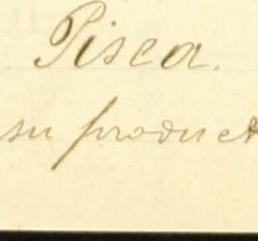 Pisca.
su product